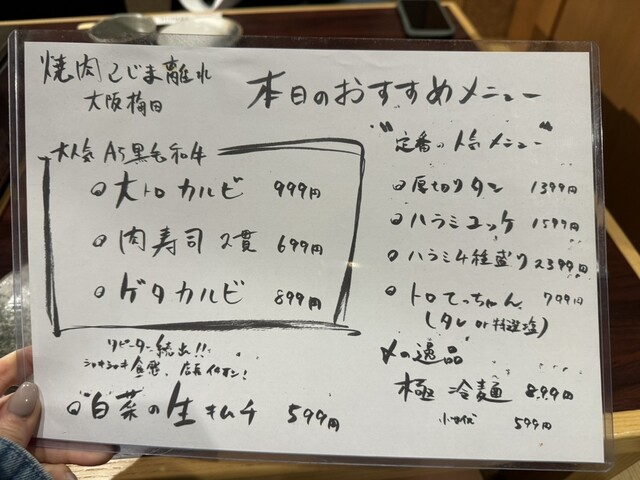 焼肉こじま離れ
大阪梅田
本日のおすすめメニュー
大人気 A5黒毛和牛
大トロカルビ 999円
肉寿司 2貫 699円
ゲタカルビ 899円
リピーター続出!!
シャキシャキ食感、店長イチオシ!
白菜の生キムチ 599円
"定番の人気メニュー"
厚切りタン 1399円
ハラミユッケ 1599円
ハラミ4種盛り 2399円
トロてっちゃん 799円
(タレor特選塩)
〆の逸品
極 冷麺 899円
599円